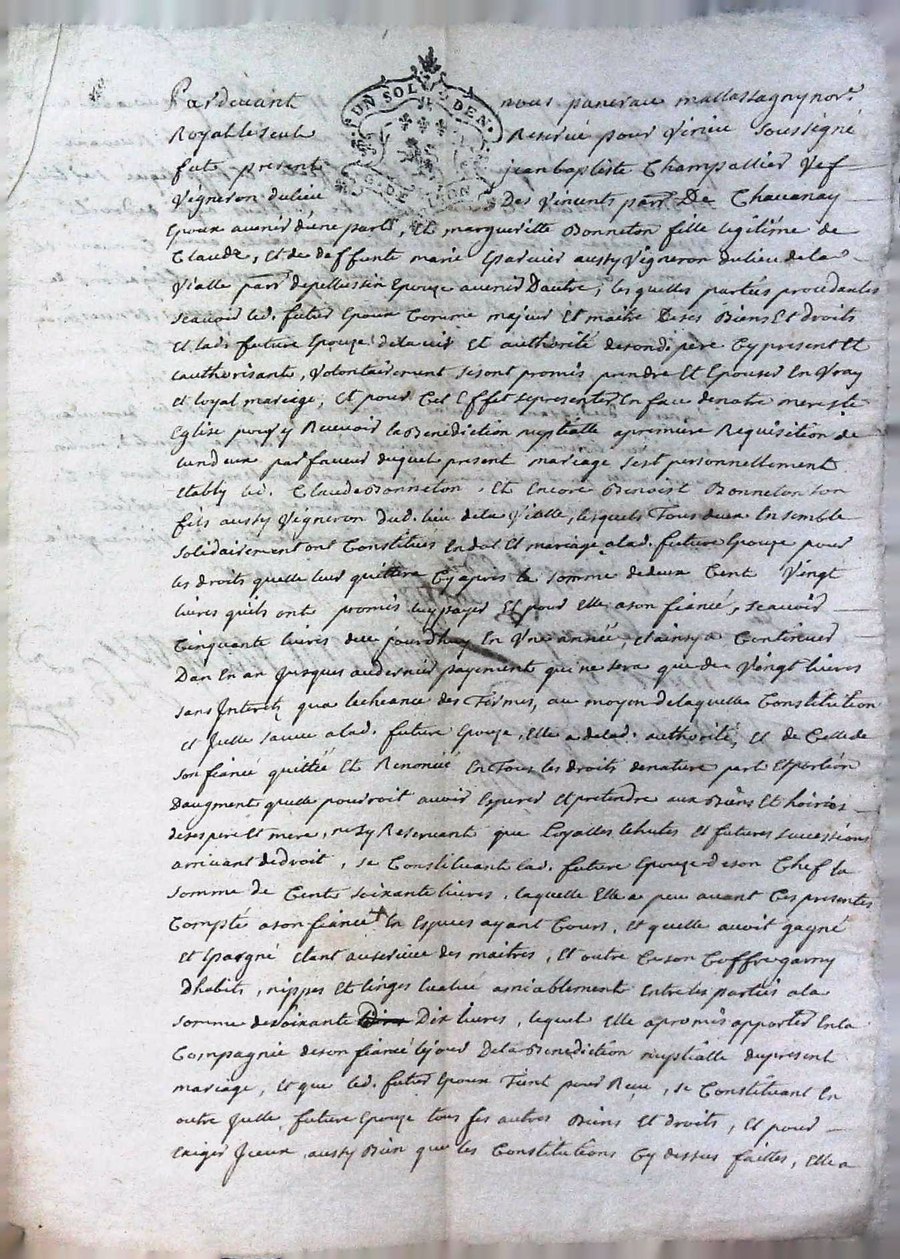 UN SOL 8 DEN.
G. DE LYON
Pardevant nous pancrace mallassagny nore.
Royal le seul Reservé pour Virieu soussigné
fut present jean baptiste Champallier vef
Vigneron du lieu Des Vincents parr. De Chavanay
Epoux avenir d'une part, Et margueritte Bonneton fille legitime de
Claude, Et de deffunte marie aussy Vigneron du lieu de la
Vialle parr. de pellussin Epouze avenir Dautre, lesquelles parties procedantes
scavoir led. futur Epoux Comme majeur Et maitre De ses Biens Et droits
Et lad. future Epouze de lavis Et authorité de sondi pere Cy present Et
lauthorisant, Volontairement se sont promis prendre Et Epouser En Vray
Et loyal mariage, Et pour Cet Effet se presenter En face de notre mere ste
Eglise pour y Recevoir la Benediction nuptialle a premiere Requisition de
lun deux par faveur duquel present mariage sest personnellement
Etably led. Claude Bonneton, Et Encore Benoist Bonneton son
fils aussy Vigneron dud. lieu de la Vialle, lesquels Tous deux Ensemble
solidairement ont Constitués En dot Et mariage a lad. future Epouze pour
les droits quelle leur quittera Cy apres la somme de deux Cent Vingt
livres quils ont promis luy payer Et pour Elle a son fiancé, scavoir
Cinquante livres de ce jourdhuy En Une année, Et ainsy a Continuer
Dan En an jusques au dernier payement qui ne sera que de Vingt livres
sans Interets qua lecheance des Termes, au moyen de laquelle Constitution
Et Icelle sauve a lad. future Epouze, Elle a de lad. authorité, Et de Celle de
son fiancé quittée Et Renoncée En Tous les droits de nature part Et portion
Daugment quelle pourroit avoir Esperer Et pretendre aux Biens Et hoiries
de ses pere Et mere, ne sy Reservant que loyalles Echutes Et futures successions
arrivant de droit, se Constituant lad. future Epouze de son Chef la
somme de Cent soixante livres, laquelle Elle a peu avant Ces presentes
Compté a son fiancé En Especes ayant Cours, Et quelle avoit gagné
Et Epargné Etant au service des maitres, Et outre Ce son Coffre garny
Dhabits, nippes Et linges Evalué amiablement Entre les parties a la
somme de soixante Dix livres, lequel Elle a promis apporter En la
Compagnie de son fiancé le jour De la Benediction nuptialle du present
mariage, Et que led. futur Epoux Tient pour Recu, se Constituant En
outre Icelle future Epouze tous ses autres Biens Et droits, Et pour
Exiger Iceux, aussy Bien que les Constitutions Cy dessus faittes, Elle a